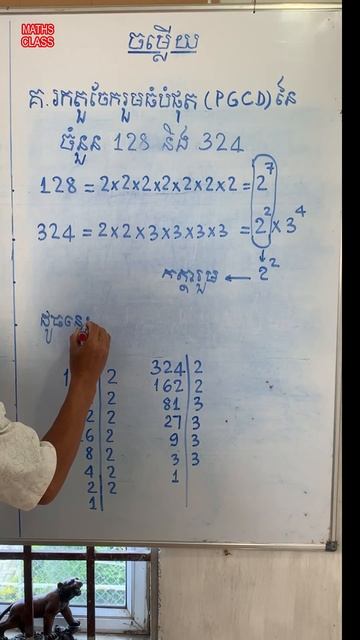 MATHS
CLASS
ចម្លើយ
គ. រកតួចែករួមធំបំផុត (PGCD) នៃ
ចំនួន 128 និង 324
128 = 2×2×2×2×2×2×2 = 2⁷
324 = 2×2×3×3×3×3 = 2²×3⁴
កត្តារួម ← 2²
ដូចនេះ
1 2
2
2 2
6 2
8 2
4 2
2 2
1
324 2
162 2
81 3
27 3
9 3
3 3
1